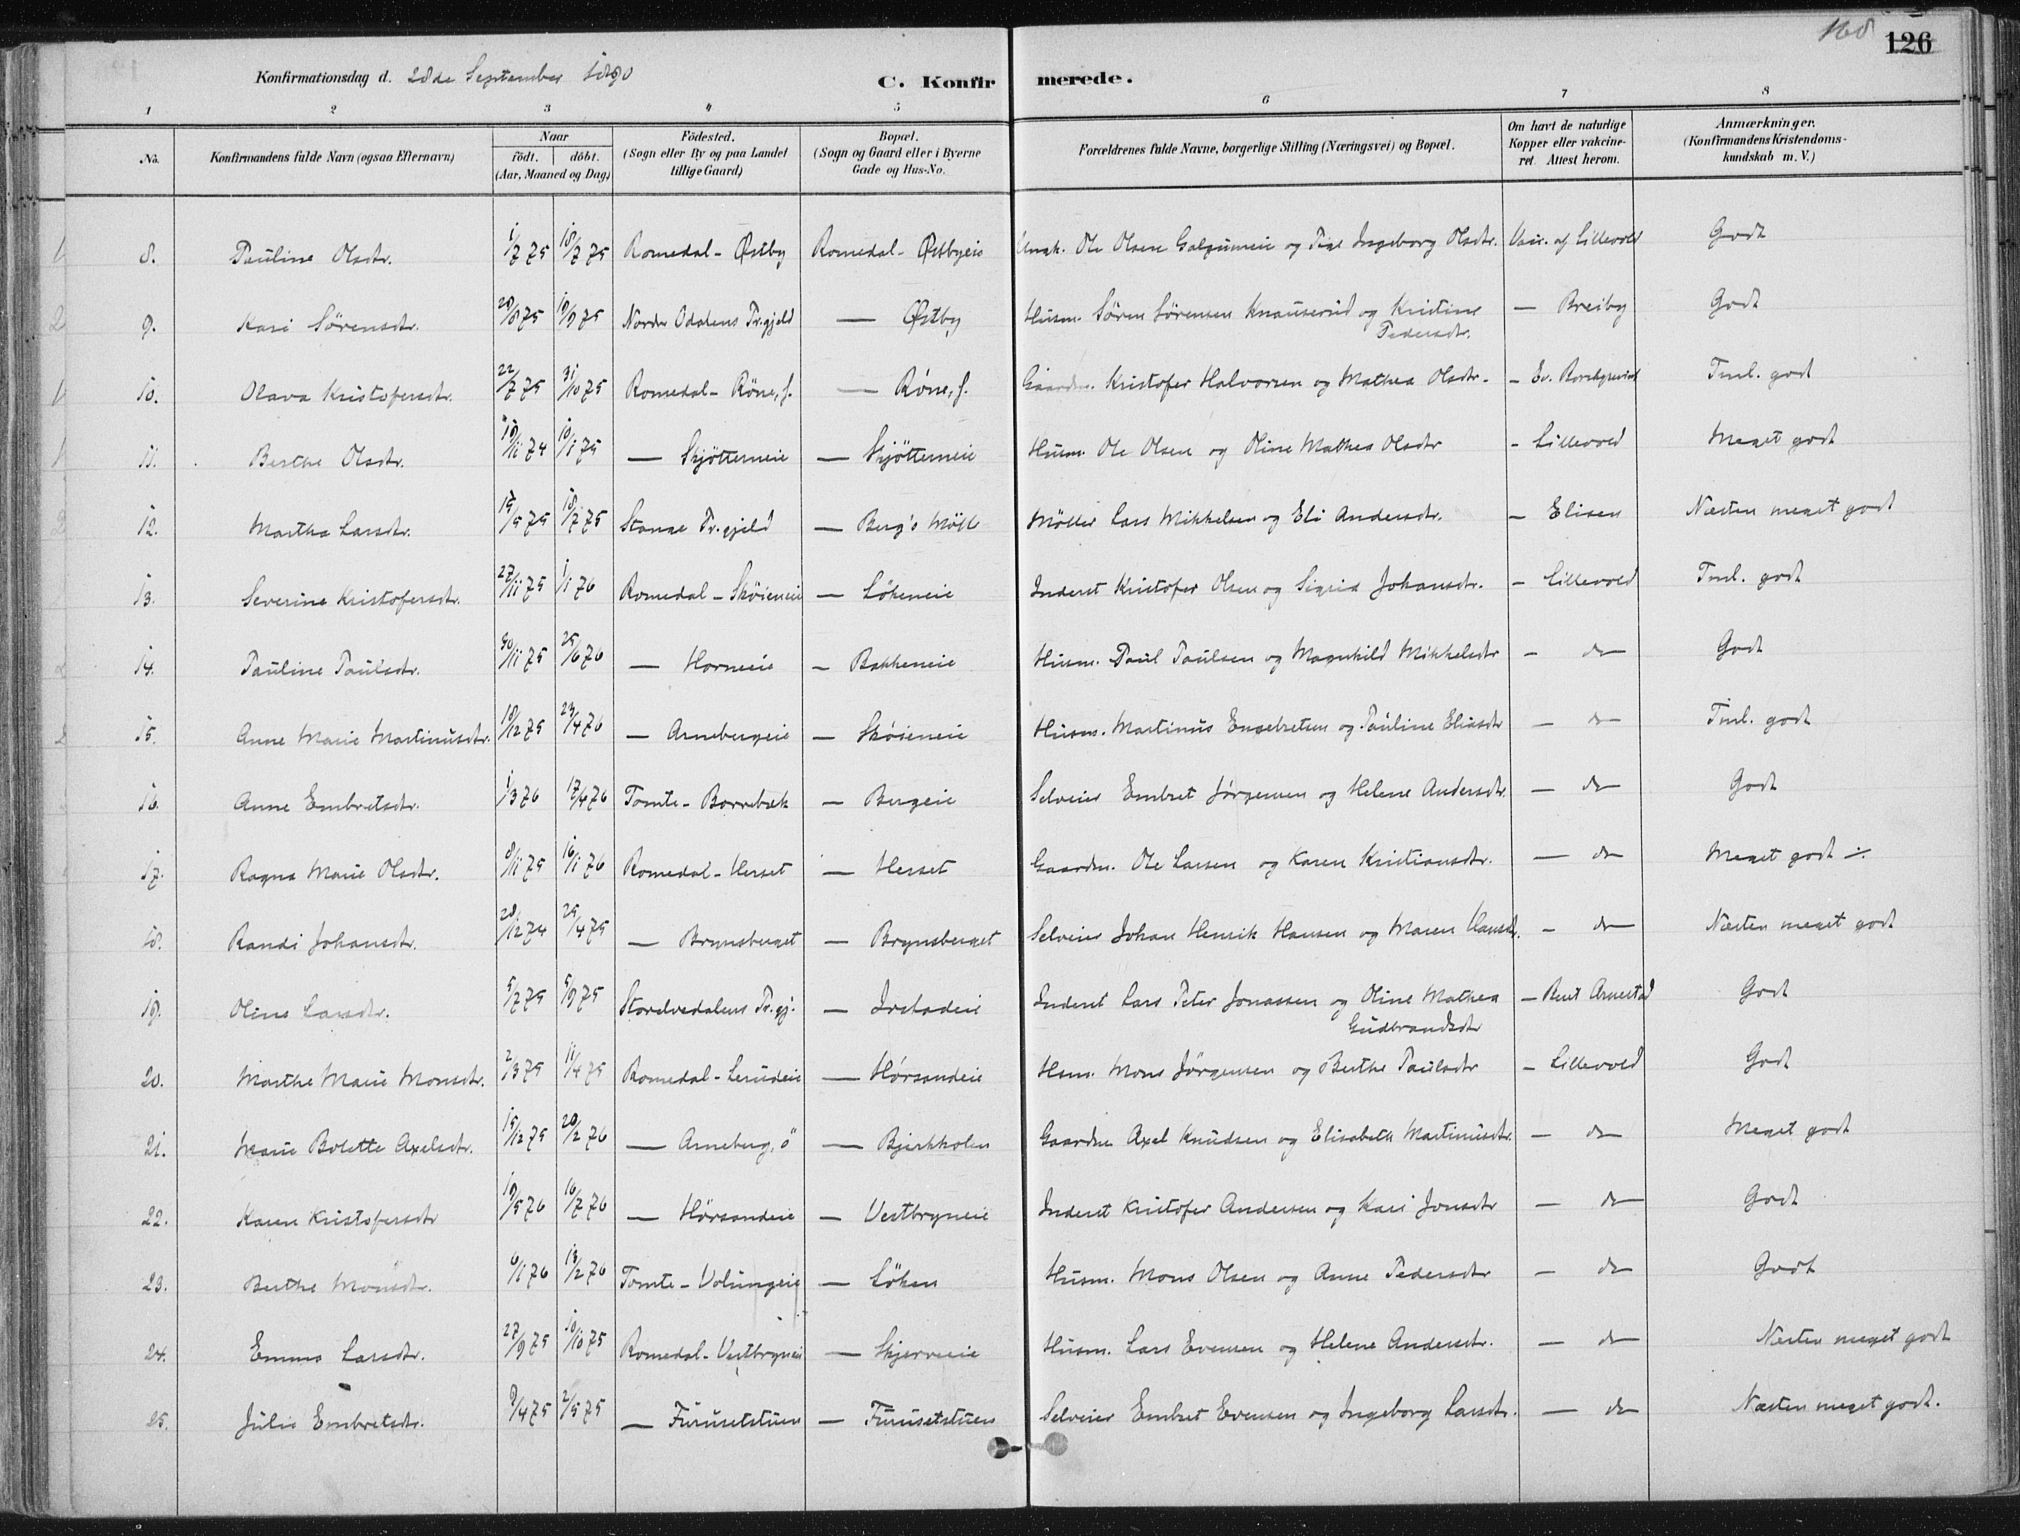 168
126
Konfirmationsdag d. 28de September 1890
C. Konfirmerede.
1 2 3 4 5 6 7 8
No. Konfirmandens fulde Navn (ogsaa Efternavn) Naar födt. döbt. (Aar, Maaned og Dag) Födested. (Sogn eller By og paa Landet tillige Gaard) Bopæl. (Sogn og Gaard eller i Byerne Gade og Hus-No. Forældrenes fulde Navne, borgerlige Stilling (Næringsvei) og Bopæl. Om havt de naturlige Kopper eller vakcineret. Attest herom. Anmærkninger. (Konfirmandens Kristendomskundskab m. V.)
8. Pauline Olsdtr. 1/7 75 18/7 75 Romedal - Østby Romedal - Østbyeie Ungk. Ole Olsen og Pige Ingeborg Olsdtr. Vacc. af Lillevold Godt
9. Kari Sörensdtr. 20/8 75 19/9 75 Nordre Odalens Pr.gjeld — Østby Husm. Sören Sörensen Knauserud og Kristine Pedersdtr. — Breiby Godt
10. Olava Kristofersdtr. 22/7 75 31/10 75 Romedal - Röne, s. — Röne, s. Gaardm. Kristofer Halvorsen og Mathea Olsdtr. - Ev. Tml. godt
11. Berthe Olsdtr. 19/11 74 10/1 75 — Skjötterneie — Skjötterneie Husm. Ole Olsen og Oline Mathea Olsdtr - Lillevold Meget godt
12. Martha Larsdtr. 15/5 75 18/7 75 Stange Pr.gjeld — Berg's Mölle Möller Lars Mikkelsen og Eli Andersdtr. — Elisen Næsten meget godt
13. Severine Kristofersdtr. 27/11 75 1/1 76 Romedal - Sköieneie — Lökeneie Inderst Kristofer Olsen og Sigrid Johansdtr. - Lillevold Tml. godt
14. Pauline Paulsdtr. 30/11 75 25/6 76 — Horneeie — Bakkeneie Husm. Paul Paulsen og Magnhild Mikkelsdtr - do Godt
15. Anne Marie Martinusdtr. 18/12 75 23/4 76 — Arnebergeie — Sköieneie Husm. Martinus Engebretsen og Pauline Eliasdtr — do Tml. godt
16. Anne Embretsdtr. 1/3 76 17/4 76 Tomte - Borrebæk — Bergeie Selveier Embret Jörgensen og Helene Andersdtr. — do Godt
17. Ragna Marie Olsdtr. 8/11 75 16/1 76 Romedal - Herset — Herset Gaardm. Ole Larsen og Karen Kristiansdtr. — do Meget godt ÷
18. Randi Johansdtr. 28/12 74 25/4 75 — Brynsberget — Brynsberget Selveier Johan Henrik Hansen og Maren Hansdtr. - do Næsten meget godt
19. Oline Larsdtr. 5/7 75 5/9 75 Storelvedalens Pr.gj. — Irstadeie Inderst Lars Peter Jonassen og Oline Mathea Gudbrandsdtr — Bent Arnestad Godt
20. Marthe Marie Monsdtr. 2/3 75 11/4 75 Romedal - Lerudeie — Hörsandeie Hsm. Mons Jörgensen og Berthe Paulsdtr - Lillevold Godt
21. Marie Bolette Axelsdtr. 15/12 75 20/2 76 — Arneberg, ö — Bjerkholen Gaardm Axel Knudsen og Elisabeth Martinusdtr. — do Meget godt
22. Karen Kristofersdtr 19/5 76 16/7 76 — Hörsandeie — Vestbryneie Inderst Kristofer Andersen og Kari Jonsdtr — do Godt
23. Berthe Monsdtr. 6/1 76 13/2 76 Tomte - Volungeie — Löken Husm. Mons Olsen og Anne Pedersdtr — do Godt
24. Emma Larsdtr. 27/9 75 10/10 75 Romedal - Vestbryneie — Skjerveie Husm. Lars Evensen og Helene Andersdtr. — do Næsten meget godt
25. Julie Embretsdtr. 9/4 75 2/5 75 — Furusetstuen — Furusetstuen Selveier Embret Evensen og Ingeborg Larsdtr. — do Næsten meget godt.